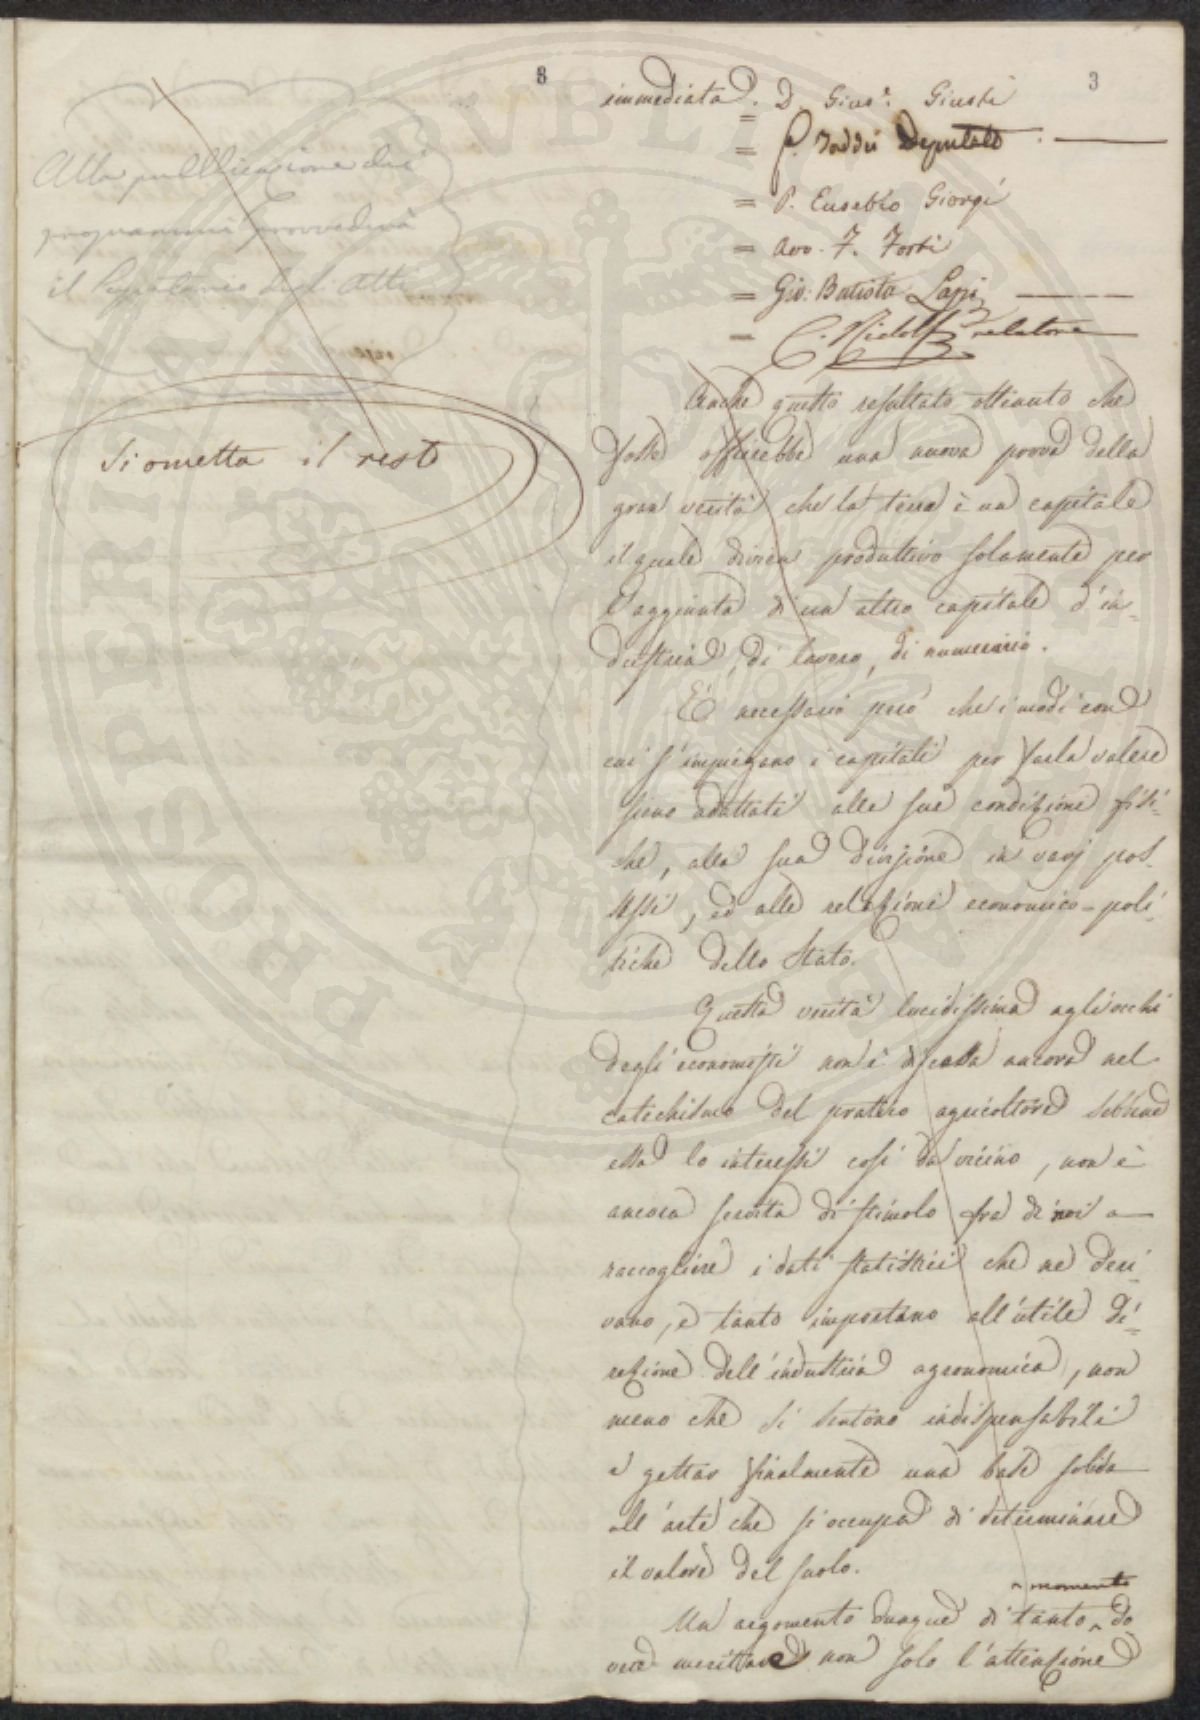 8
3
Alla pubblicazione dei
programmi provvederà
il Segretario degli Atti
Si ometta il resto
immediata. D. Gius.e Giusti
= G. Taddei Deputato.
= P. Eusebio Giorgi
= Avv. F. Forti
= Gio: Batista Lapi
= C. Ridolfi relatore
Anche questo resultato ottenuto che
fosse offrirebbe una nuova prova della
gran verità che la terra è un capitale
il quale divien produttivo solamente per
l'aggiunta di un altro capitale d'in=
dustria, di lavoro, di numerario.
È necessario però che i modi con
cui s'impiegano i capitali per farla valere
sieno adattati alle sue condizioni fisi=
che, alla sua divisione in varj pos=
sessi, ed alle relazioni economico-poli=
tiche dello Stato.
Questa verità lucidissima agli occhi
degli economisti non è discesa ancora nel
catechismo del pratico agricoltore sebbene
essa lo interessi così da vicino, non è
ancora servita di stimolo fra di noi a
raccogliere i dati statistici che ne deri=
vano, e tanto importano all'utile di=
rezione dell'industria agronomica, non
meno che si sentono indispensabili
a gettar finalmente una base solida
all'arte che si occupa di determinare
il valore del suolo.
Un argomento dunque di tanto momento do
vea meritare non solo l'attenzione